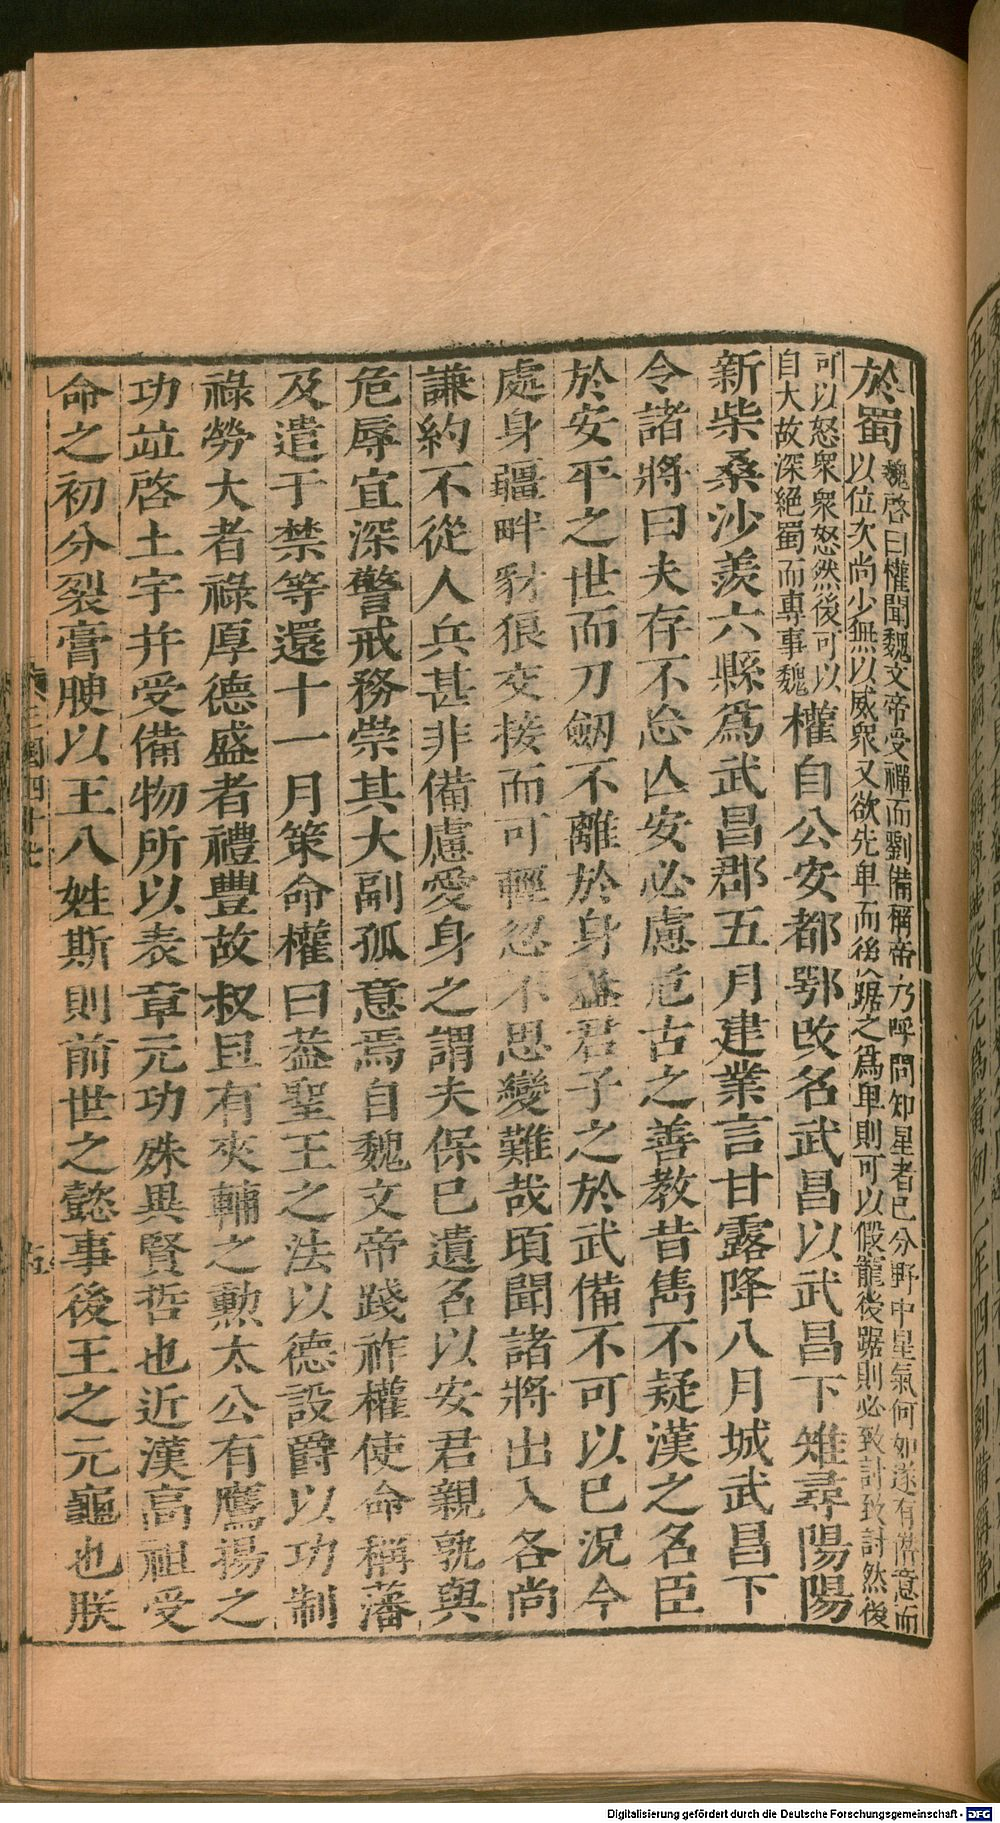 改元爲黃初二年四月劉備稱帝
於蜀
魏畧曰權聞魏文帝受禪而劉備稱帝乃呼問知星者已分野中星氣何如遂有僭意而
以位次尚少無以威衆又欲先卑而後踞之爲卑則可以假寵後踞則必致討致討然後
可以怒衆衆怒然後可以
自大故深絕蜀而專事魏
權自公安都鄂改名武昌以武昌下雉尋陽陽
新柴桑沙羨六縣爲武昌郡五月建業言甘露降八月城武昌下
令諸將曰夫存不忘亾安必慮危古之善教昔雋不疑漢之名臣
於安平之世而刀劒不離於身蓋君子之於武備不可以已況今
處身疆畔豺狼交接而可輕忽不思變難哉頃聞諸將出入各尚
謙約不從人兵甚非備慮愛身之謂夫保已遺名以安君親孰與
危辱宜深警戒務崇其大副孤意焉自魏文帝踐祚權使命稱藩
及遣于禁等還十一月策命權曰葢聖王之法以德設爵以功制
祿勞大者祿厚德盛者禮豐故叔旦有夾輔之勲太公有鷹揚之
功竝啓土宇并受備物所以表章元功殊異賢哲也近漢高祖受
命之初分裂膏腴以王八姓斯則前世之懿事後王之元龜也朕
三國四十七
十五
Digitalisierung gefördert durch die Deutsche Forschungsgemeinschaft - DFG